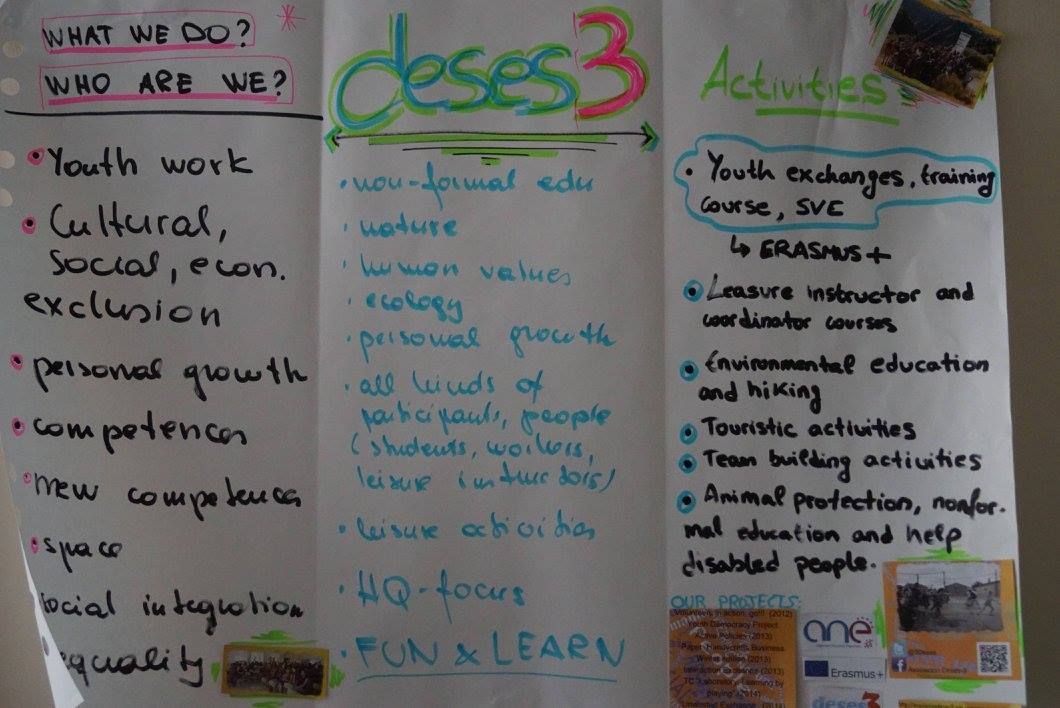 WHAT WE DO?
WHO ARE WE?
Youth work
Cultural,
social, econ.
exclusion
personal growth
competences
new competences
space
social integration
equality
deses3
non-formal edu
nature
human values
ecology
personal growth
all kinds of
participants, people
(students, workers,
leisure instructors)
leisure activities
HQ-focus
FUN & LEARN
Activities
Youth exchanges, training
course, SVE
↳ ERASMUS+
Leasure instructor and
coordinator courses
Environmental education
and hiking
Touristic activities
Team building activities
Animal protection, nonfor-
mal education and help
disabled people.
OUR PROJECTS:
Volunteers in action, go!!! (2012)
Youth Democracy Project
Active Policies (2013)
Paper Handycrafts Business
Winter edition (2013)
Interaction Exchange (2013)
TC "Laboratory: Learning by
playing" (2014)
ane
Erasmus+
deses3